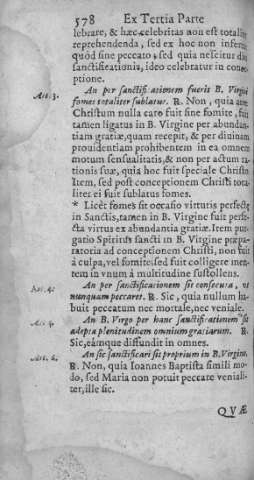 578 Ex Tertia Parte
lebrare, & hæc celebritas non est totaliter
reprehendenda, sed ex hoc non infertur
quòd sine peccato, sed quia nescitur dies
sanctificationis, ideo celebratur in conce-
ptione.
Art. 3. An per sanctificationem fuerit B. Virgini
fomes totaliter sublatus. R. Non, quia ante
Christum nulla caro fuit sine fomite, fuit
tamen ligatus in B. Virgine per abundan-
tiam gratiæ, quam recepit, & per diuinam
prouidentiam prohibentem in ea omnem
motum sensualitatis, & non per actum ra-
tionis suæ, quia hoc fuit speciale Christo
Item, sed post conceptionem Christi tota-
liter ei fuit sublatus fomes.
* Licèt fomes sit occasio virtutis perfectę
in Sanctis, tamen in B. Virgine fuit perfe-
cta virtus ex abundantia gratiæ. Item pur-
gatio Spiritus sancti in B. Virgine præpa-
ratoria ad conceptionem Christi, non fuit
à culpa, vel fomite, sed fuit colligere men-
tem in vnum à multitudine sustollens.
Art. 4. An per sanctificationem sit consecuta, vt
nunquam peccaret. R. Sic, quia nullum ha-
buit peccatum nec mortale, nec veniale.
Art. 5. An B. Virgo per hanc sanctificationem sit
adepta plenitudinem omnium gratiarum. R.
Sic, eámque diffundit in omnes.
Art. 6. An sic sanctificari sit proprium in B. Virgine.
R. Non, quia Ioannes Baptista simili mo-
do, sed Maria non potuit peccare veniali-
ter, ille sic.
QVÆ